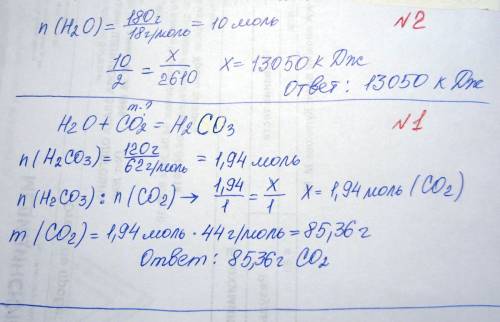 n(H2O) = 180г / 18г/моль = 10 моль №2
10/2 = x/2610 x = 13050 кДж
Ответ: 13050 кДж
m-?
H2O + CO2 = H2CO3 №1
n(H2CO3) = 120г / 62г/моль = 1,94 моль
n(H2CO3) : n(CO2) → 1,94/1 = x/1 x = 1,94 моль (CO2)
m(CO2) = 1,94 моль · 44 г/моль = 85,36 г
Ответ: 85,36 г CO2